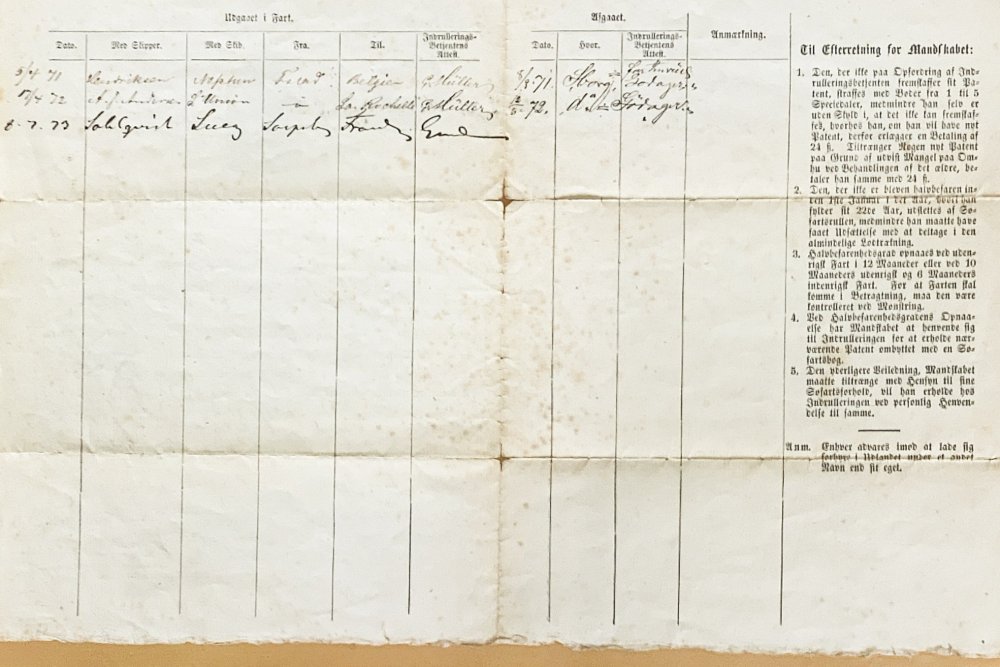 Udgaaet i Fart.
Afgaaet.
Dato. Med Skipper. Med Skib. Fra. Til. Indrullerings-Betjentens Attest.
Dato. Hvor. Indrullerings-Betjentens Attest.
Anmærkning.
5/4 71 Hendriksen Neptun Belgien G. Müller
72 Union La Rochelle G. Müller
8-7.73 Sahlqvist Lucy
71
72.
Til Efterretning for Mandskabet:
1. Den, der ikke paa Opfordring af Ind-
rulleringsbetjenten fremskaffer sit Pa-
tent, straffes med Bøder fra 1 til 5
Speciedaler, medmindre han selv er
uden Skyld i, at det ikke kan fremskaf-
fes, hvorhos han, om han vil have nyt
Patent, derfor erlægger en Betaling af
24 ß. Tiltrænger Nogen nyt Patent
paa Grund af udvist Mangel paa Om-
hu ved Behandlingen af det ældre, be-
taler han samme med 24 ß.
2. Den, der ikke er bleven halvbefaren in-
den 1ste Januar i det Aar, hvori han
fylder sit 22de Aar, udslettes af Sø-
fartsrullen, medmindre han maatte have
faaet Udsættelse med at deltage i den
almindelige Lodtrækning.
3. Halvbefarenhedsgrad opnaaes ved uden-
rigsk Fart i 12 Maaneder eller ved 10
Maaneders udenrigsk og 6 Maaneders
indenrigsk Fart. For at Farten skal
komme i Betragtning, maa den være
kontrolleret ved Mønstring.
4. Ved Halvbefarenhedsgradens Opnaa-
else har Mandskabet at henvende sig
til Indrulleringen for at erholde nær-
værende Patent ombyttet med en Sø-
fartsbog.
5. Den yderligere Veiledning, Mandskabet
maatte tiltrænge med Hensyn til sine
Søfartsforhold, vil han erholde hos
Indrulleringen ved personlig Henven-
delse til samme.
Anm. Enhver advares imod at lade sig
forhyre i Udlandet under et andet
Navn end sit eget.